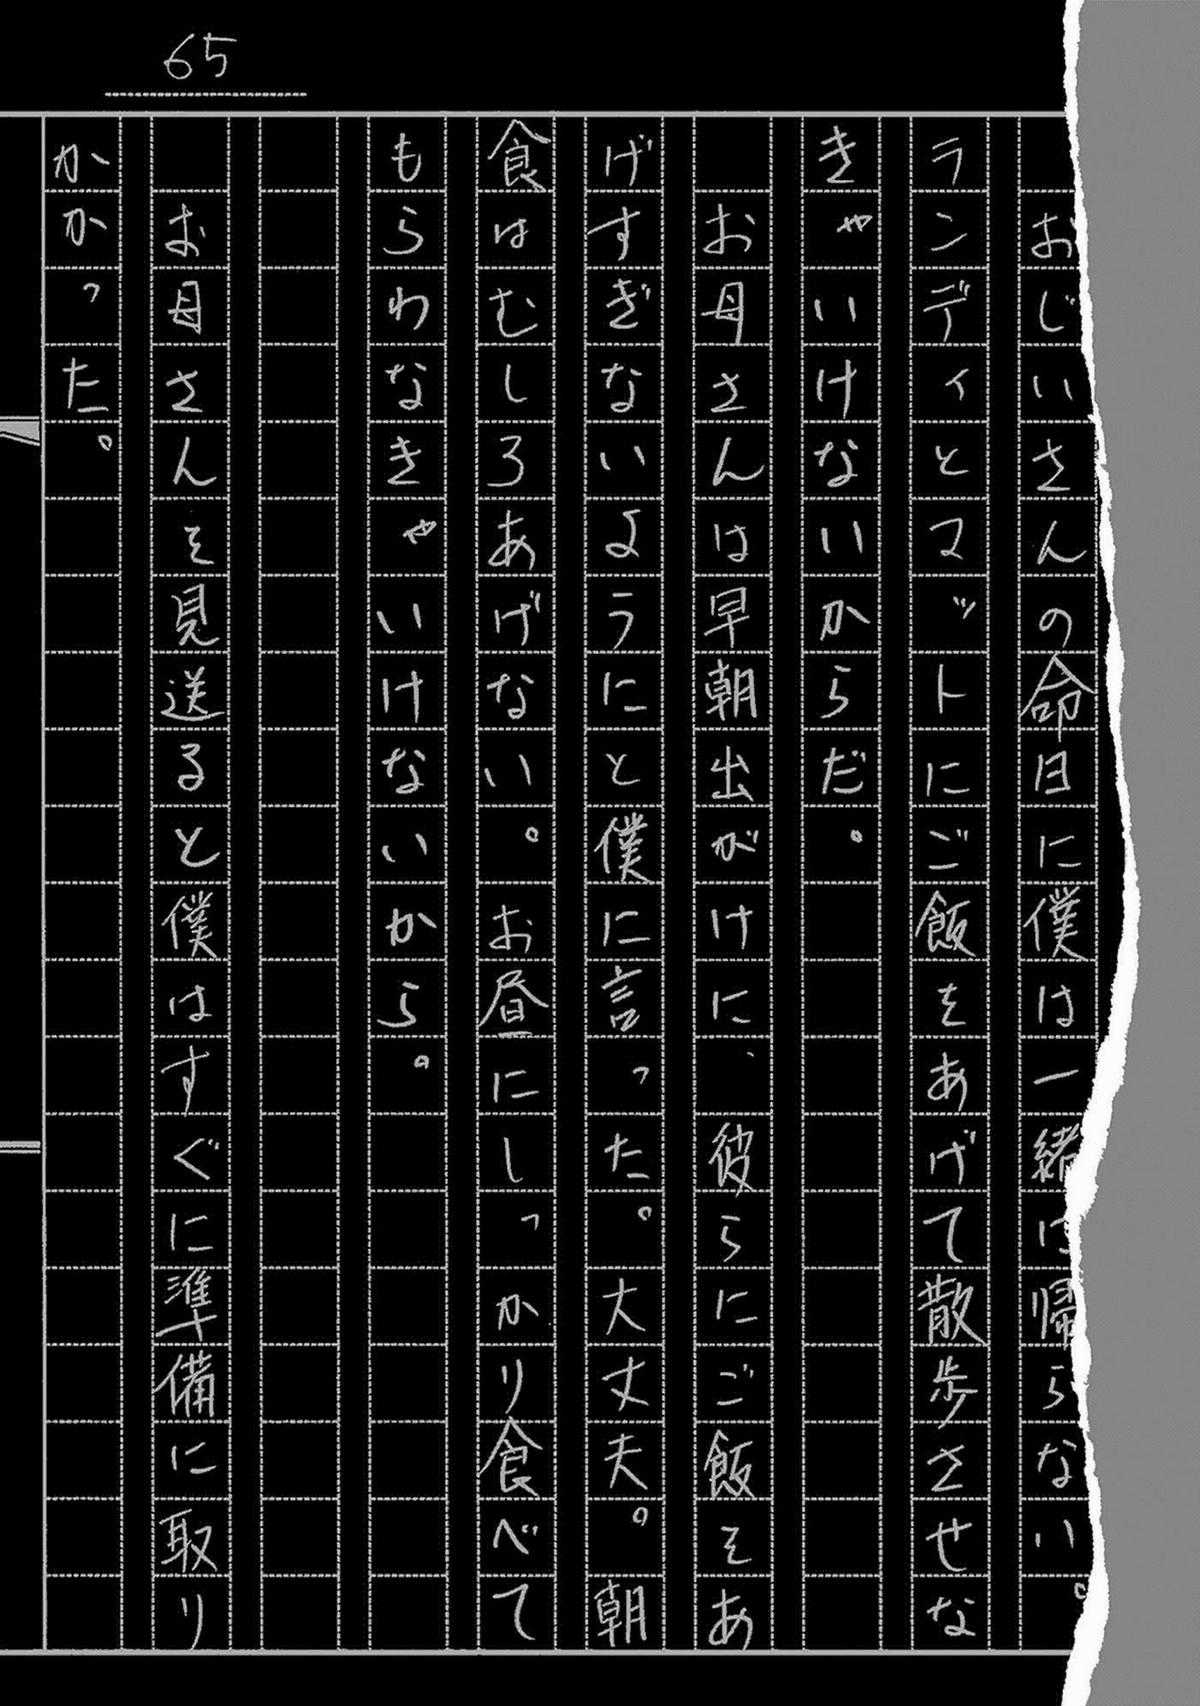 65
おじいさんの命日に僕は一緒に帰らない。
ランディとマットにご飯をあげて散歩させな
きゃいけないからだ。
お母さんは早朝出がけに、彼らにご飯をあ
げすぎないようにと僕に言った。大丈夫。朝
食はむしろあげない。お昼にしっかり食べて
もらわなきゃいけないから。
お母さんを見送ると僕はすぐに準備に取り
かかった。